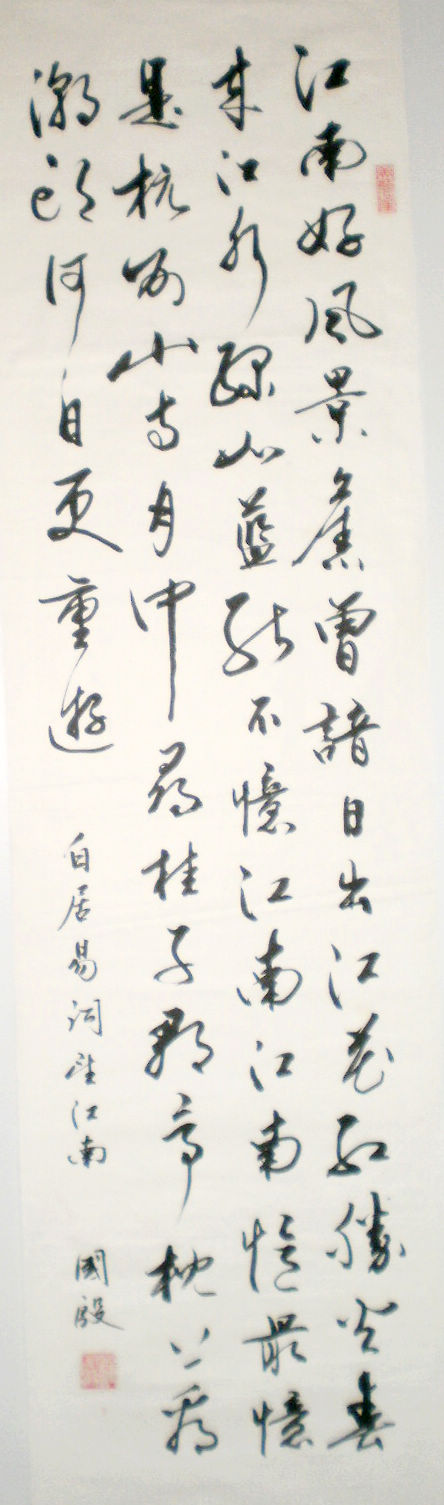 江南好風景舊曾諳日出江花紅勝火春
來江水綠如藍能不憶江南江南憶最憶
是杭州山寺月中尋桂子郡亭枕上看
潮頭何日更重遊
白居易詞望江南
國殷